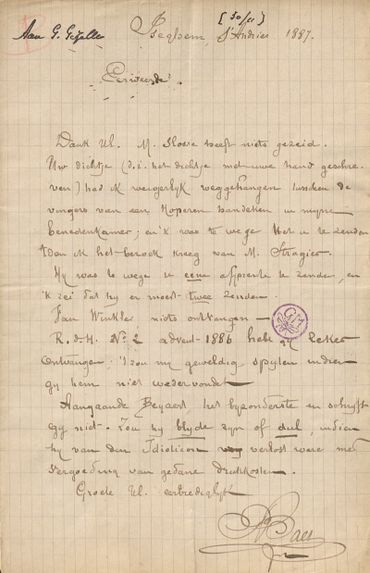 [30/11]
Aan G. Gezelle
Iseghem, St Andries 1887.
Eerweerde
Dank Ul. M. Slosse heeft niets gezeid.
Uw dichtje (d.i. het dichtje met uwe hand geschre-
ven) had ik weigerlijk weggehangen tusschen de
vingers van een koperen handeken in myne
benedenkamer; en 'k was te wege het u te zenden
toen ik het bezoek kreeg van M. Stragier.
Hy was te wege u eene afprente te zenden, en
'k zei dat hy er moest twee zenden.
Van Winkler niets ontvangen
R. d. H. No 2 advent 1886 heb gy zeker
ontvangen; 't zou my geweldig spyten indien
gy hem niet wedervondet
Aangaande Beyaert, het byzonderste en schryft
gy niet. Zou hy blyde zyn of dul, indien
hy van den Idioticon verlost were met
vergoeding van gedane drukkosten.
Groete Ul. eerbiediglyk